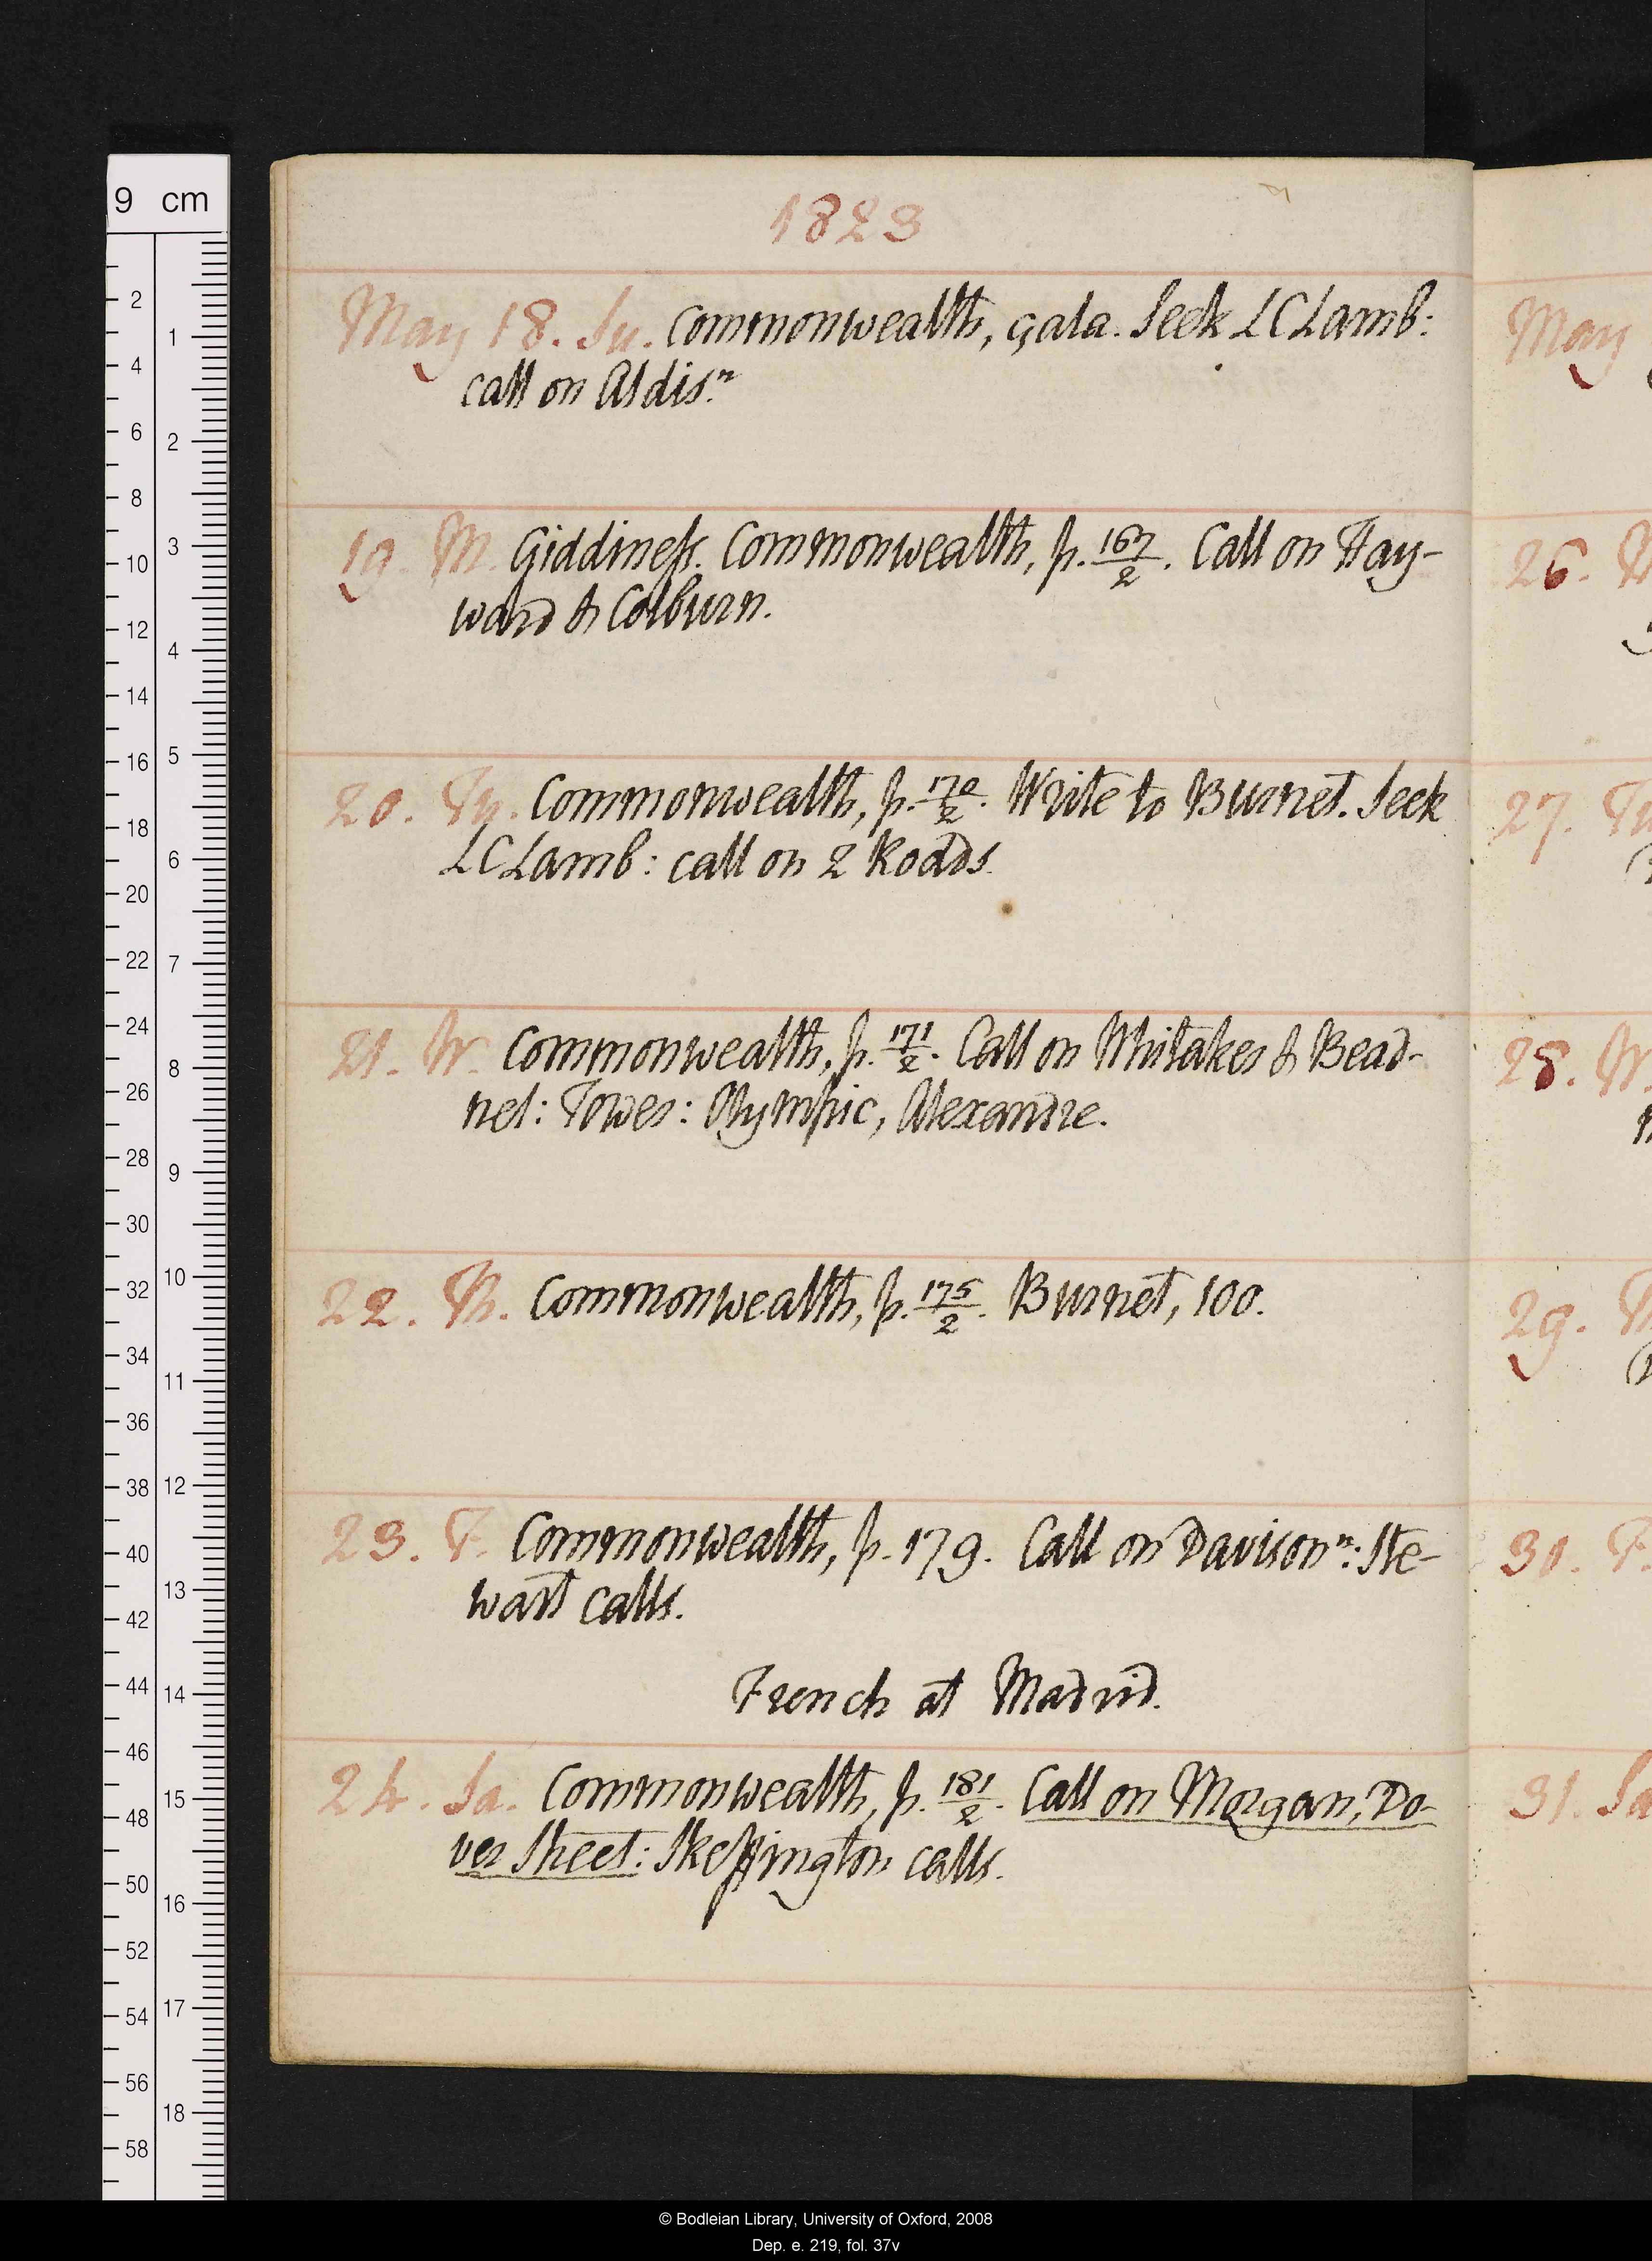 1823
May 18. Su. Commonwealth, gala. Seek LCLamb:
call on Aldis.ⁿ
19. M. Giddineſs. Commonwealth, p. 167/2. Call on Hay-
ward & Colburn.
20. Tu. Commonwealth, p. 170/2. Write to Burnet. Seek
LCLamb: call on 2 Roads.
21. W. Commonwealth, p. 171/2. Call on Whitaker & Bead-
nel: Tower: Olympic, Alexandre.
22. Th. Commonwealth, p. 175/2. Burnet, 100.
23. F. Commonwealth, p. 179. Call on Davisonⁿ: Ste-
wart calls.
French at Madrid.
24. Sa. Commonwealth, p. 181/2. Call on Morgan, Do-
ver Street: Skeffington calls.
May
26.
27. Tu
28. W.
29. Th
30. F.
31. Sa
9 cm
2 4 6 8 10 12 14 16 18 20 22 24 26 28 30 32 34 36 38 40 42 44 46 48 50 52 54 56 58
1 2 3 4 5 6 7 8 9 10 11 12 13 14 15 16 17 18
© Bodleian Library, University of Oxford, 2008
Dep. e. 219, fol. 37v